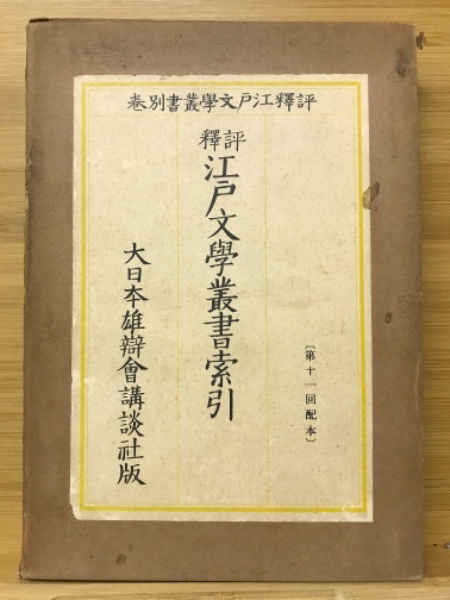 評釋江戸文學叢書別卷
評釋
江戸文學叢書索引
〔第十一回配本〕
大日本雄辯會講談社版